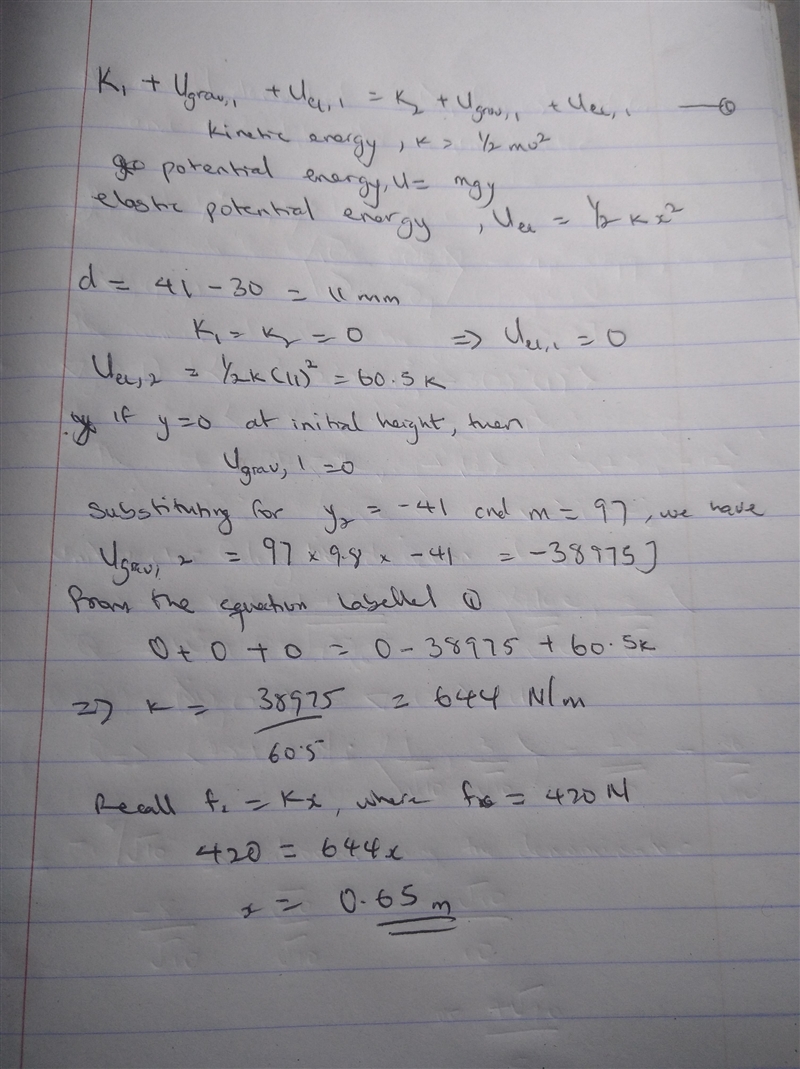 K₁ + Ugrav,₁ + Uel,1 = K₂ + Ugrav,₁ + Uel,₁ —①
kinetic energy, K = ½ mv²
potential energy, U = mgy
elastic potential energy, Uel = ½ K x²
d = 41 - 30 = 11 mm
K₁ = K₂ = 0 => Uel,1 = 0
Uel,2 = ½K(11)² = 60.5K
if y=0 at initial height, then
Ugrav,1 = 0
Substituting for y₂ = -41 and m = 97, we have
Ugrav,2 = 97 × 9.8 × -41 = -38975J
from the equation labelled ①
0 + 0 + 0 = 0 - 38975 + 60.5K
=> K = 38975/60.5 = 644 N/m
Recall fₓ = Kx, where fₓ = 420 N
420 = 644x
x = 0.65 m